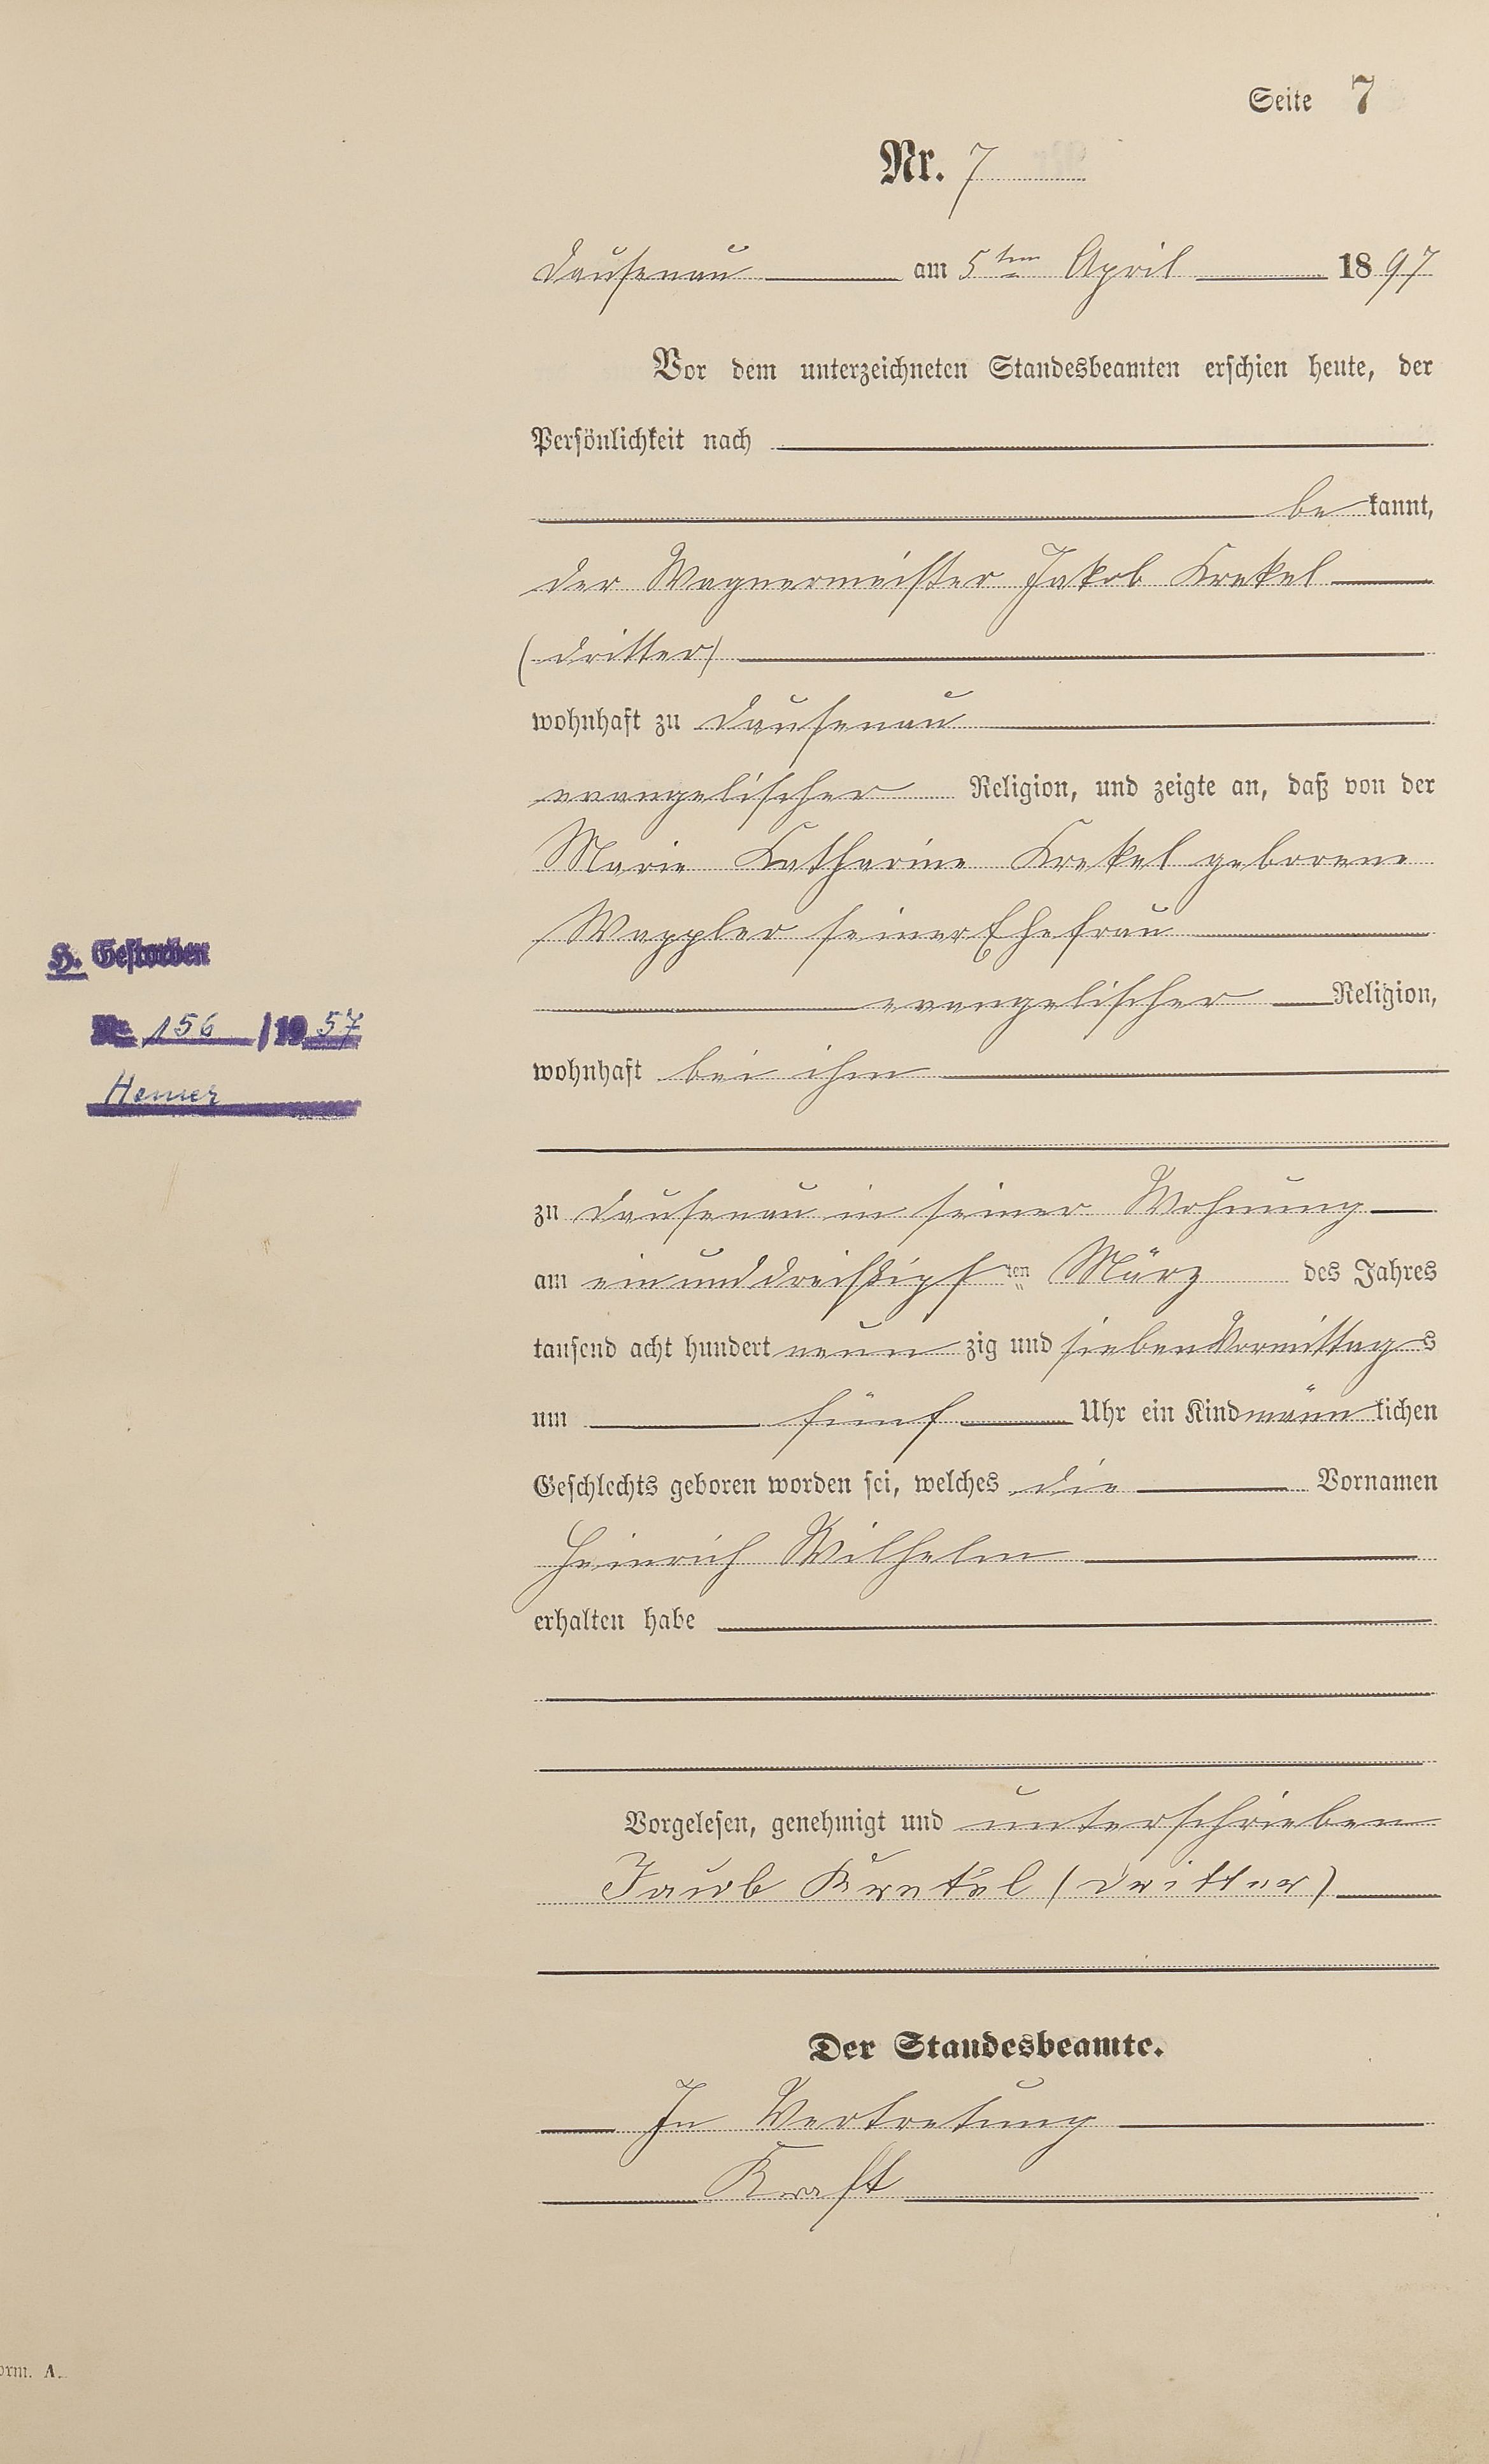 Seite 7
Nr. 7
Dausenau am 5ten April 1897
Vor dem unterzeichneten Standesbeamten erschien heute, der
Persönlichkeit nach
bekannt,
der Wagnermeister Jakob Krekel
(dritter)
wohnhaft zu Dausenau
evangelischer Religion, und zeigte an, daß von der
Marie Katharine Krekel geborene
Wappler seiner Ehefrau
evangelischer Religion,
H. Gestorben
wohnhaft bei ihm
Nr. 156 /1957
Hemer
zu Dausenau in seiner Wohnung
am einunddreißigsten März des Jahres
tausend acht hundert neunzig und sieben Vormittags
um fünf Uhr ein Kind männlichen
Geschlechts geboren worden sei, welches die Vornamen
Heinrich Wilhelm
erhalten habe
Vorgelesen, genehmigt und unterschrieben
Jacob Krekel (dritter)
Der Standesbeamte.
In Vertretung
Kraft
orm. A.